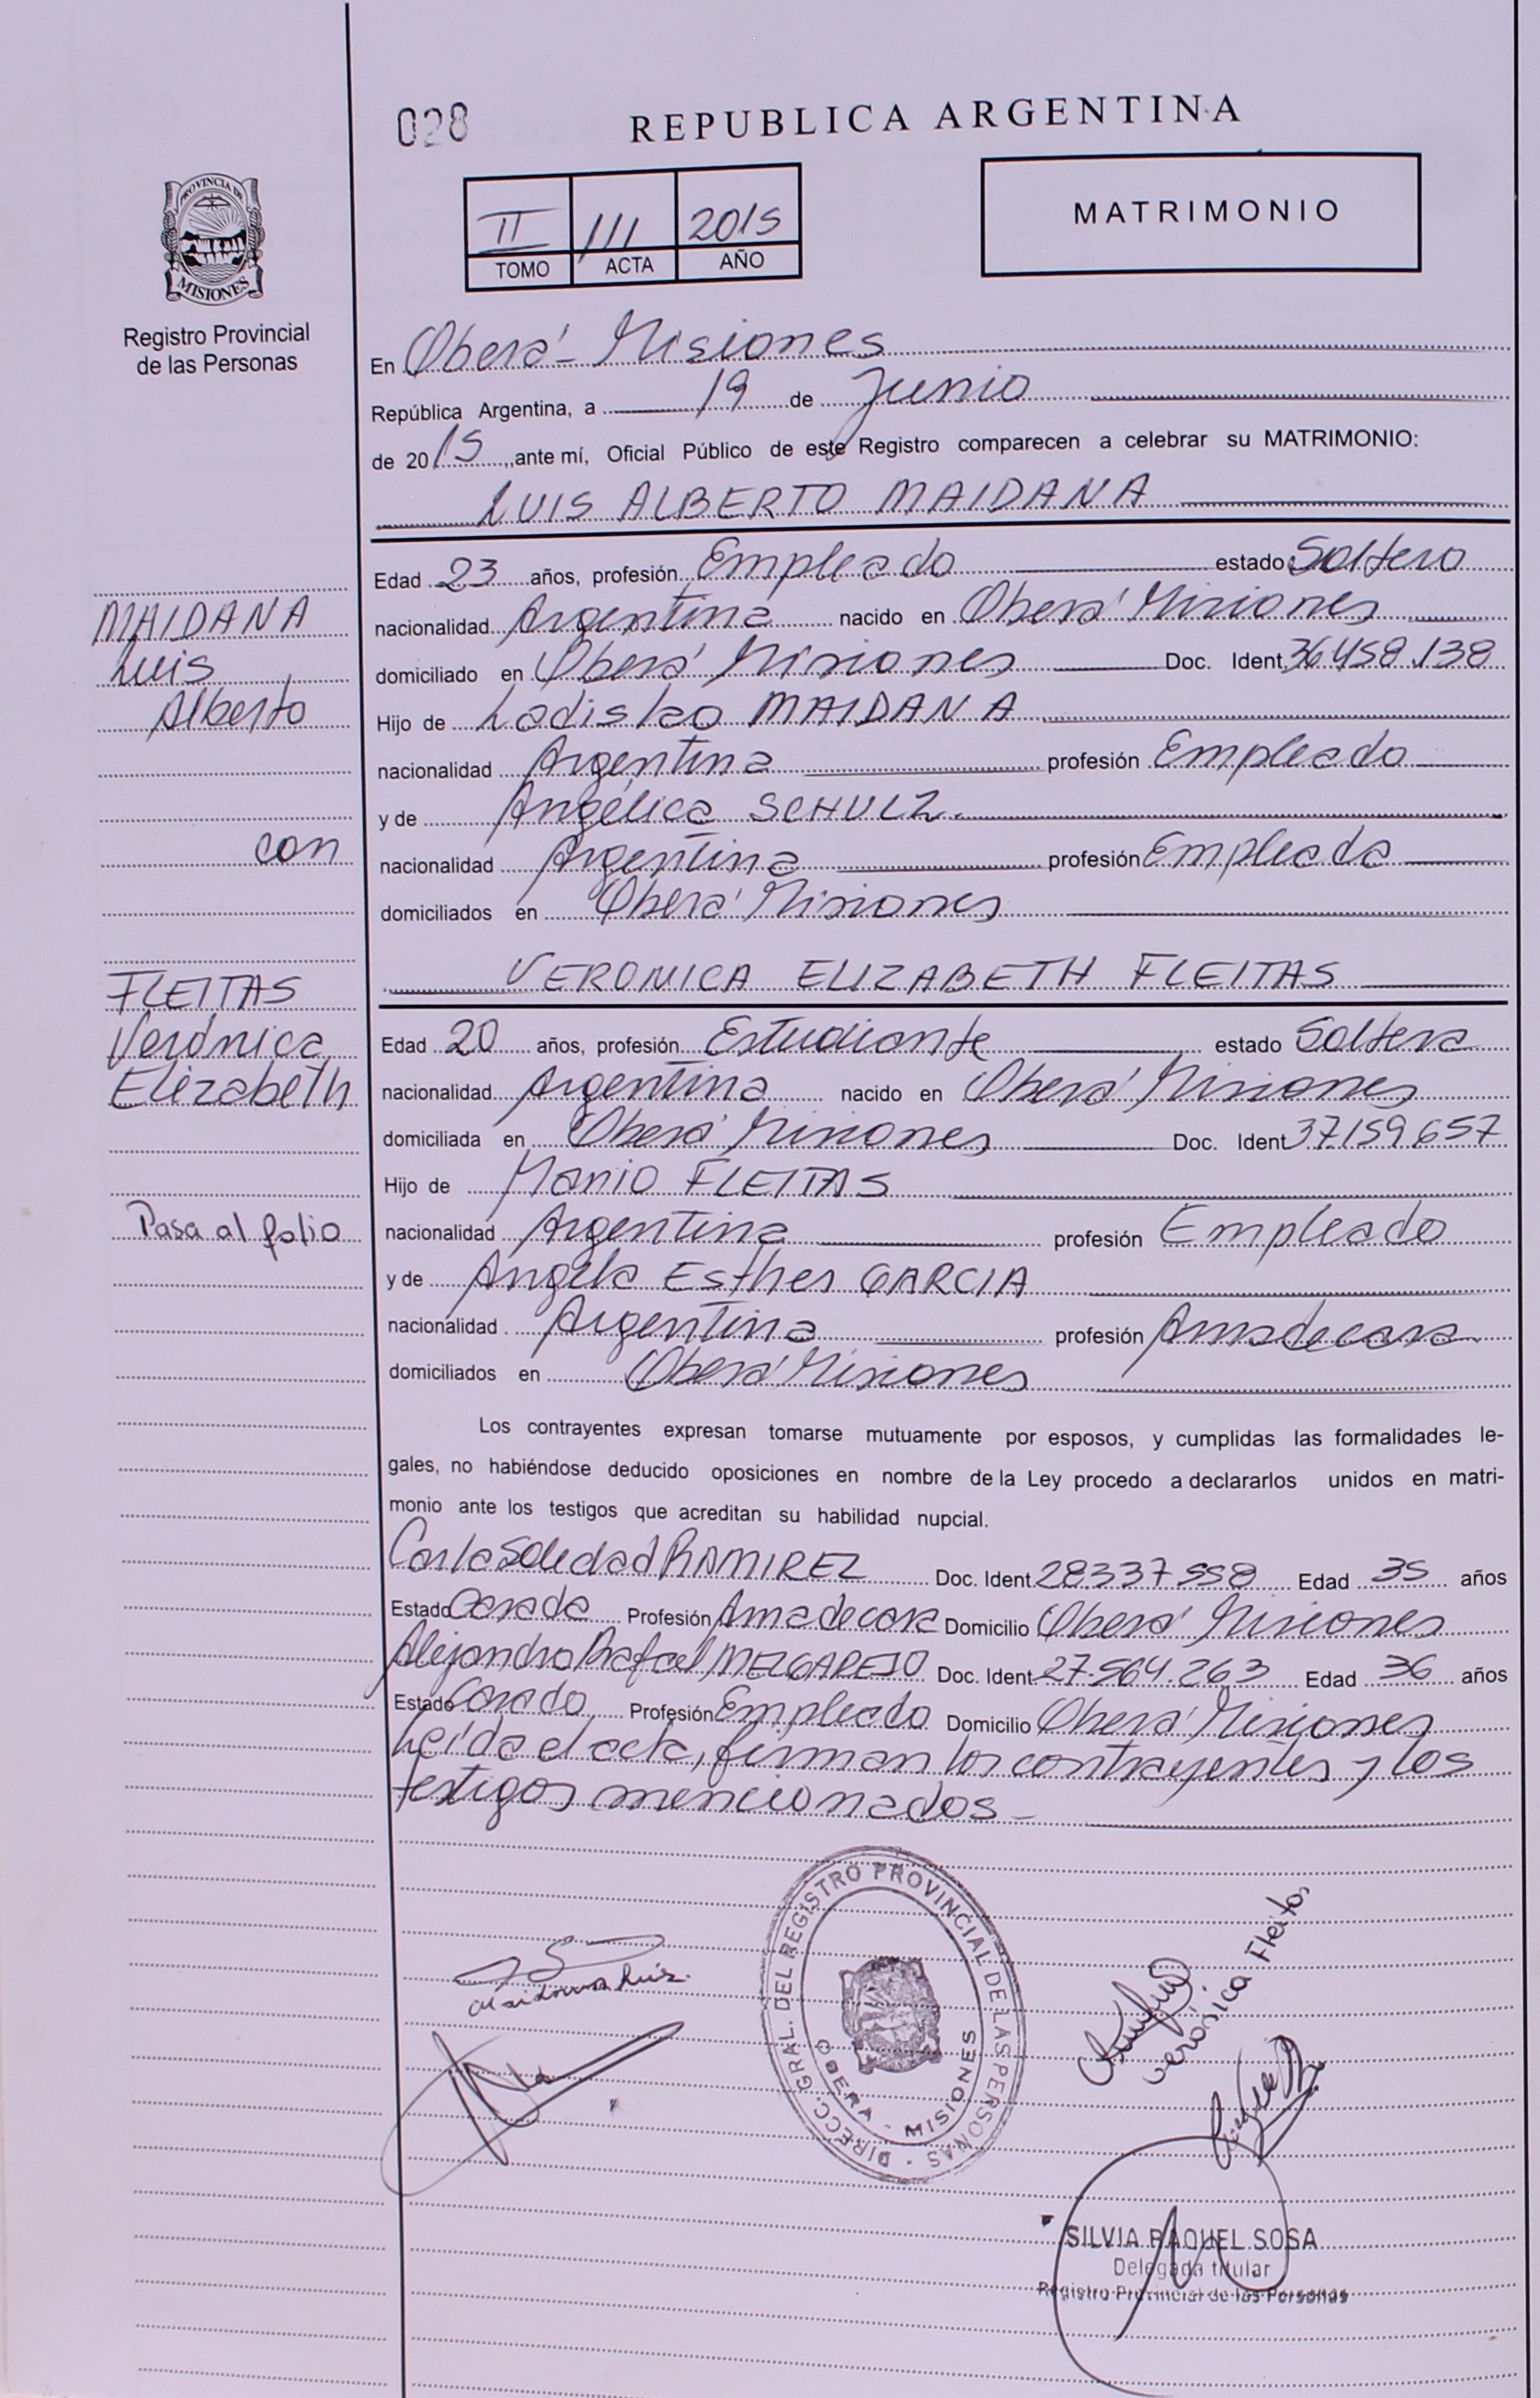 028
REPUBLICA ARGENTINA
PROVINCIA DE
MISIONES
Registro Provincial
de las Personas
II 111 2015
TOMO ACTA AÑO
MATRIMONIO
En Oberá - Misiones
República Argentina, a 19 de Junio
de 2015, ante mí, Oficial Público de este Registro comparecen a celebrar su MATRIMONIO:
LUIS ALBERTO MAIDANA
Edad 23 años, profesión Empleado estado Soltero
MAIDANA
nacionalidad Argentina nacido en Oberá Misiones
Luis
domiciliado en Oberá Misiones Doc. Ident. 36.458.138
Alberto
Hijo de Ladislao MAIDANA
nacionalidad Argentina profesión Empleado
y de Angélica SCHULZ.
con
nacionalidad Argentina profesión Empleada
domiciliados en Oberá Misiones
VERONICA ELIZABETH FLEITAS
FLEITAS
Verónica
Edad 20 años, profesión Estudiante estado Soltera
Elizabeth
nacionalidad Argentina nacido en Oberá Misiones
domiciliada en Oberá Misiones Doc. Ident 37159657
Hijo de Mario FLEITAS
Pasa al folio
nacionalidad Argentina profesión Empleado
y de Angela Esther GARCIA
nacionalidad Argentina profesión Amadecasa
domiciliados en Oberá Misiones
Los contrayentes expresan tomarse mutuamente por esposos, y cumplidas las formalidades le-
gales, no habiéndose deducido oposiciones en nombre de la Ley procedo a declararlos unidos en matri-
monio ante los testigos que acreditan su habilidad nupcial.
Carla Soledad RAMIREZ Doc. Ident 28337558 Edad 35 años
Estado Casada Profesión Amadecasa Domicilio Oberá Misiones
Alejandro Rafael MELGAREJO Doc. Ident 27.564.263 Edad 36 años
Estado Casado Profesión Empleado Domicilio Oberá Misiones
Leída el acta, firman los contrayentes y los
testigos mencionados -
DIRECC. GRAL. DEL REGISTRO PROVINCIAL DE LAS PERSONAS
OBERA - MISIONES
Maidana Luis
Verónica Fleitas
SILVIA RAQUEL SOSA
Delegada titular
Registro Provincial de las Personas